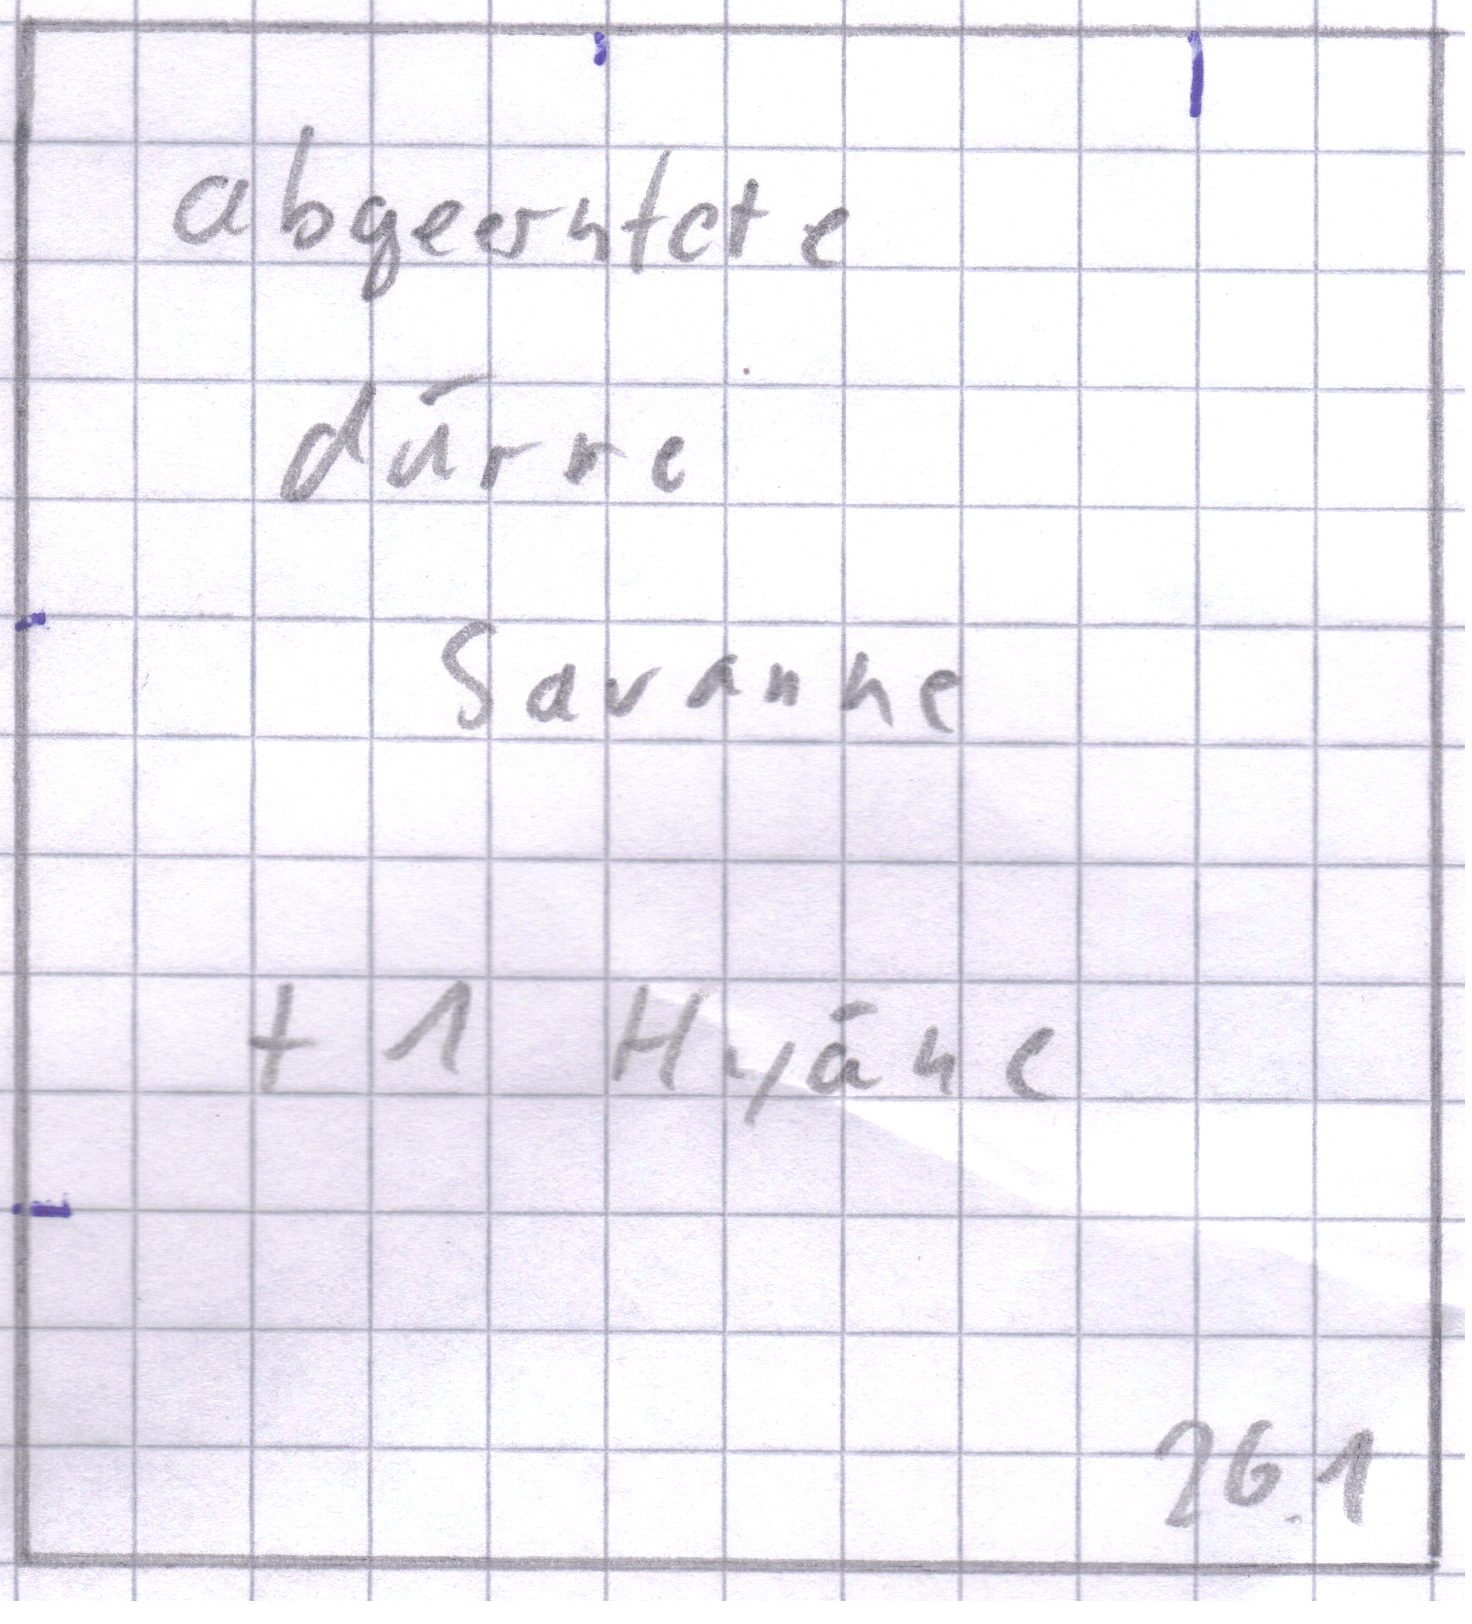 abgeerntete
dürre
Savanne
+ 1 Hyäne
26.1